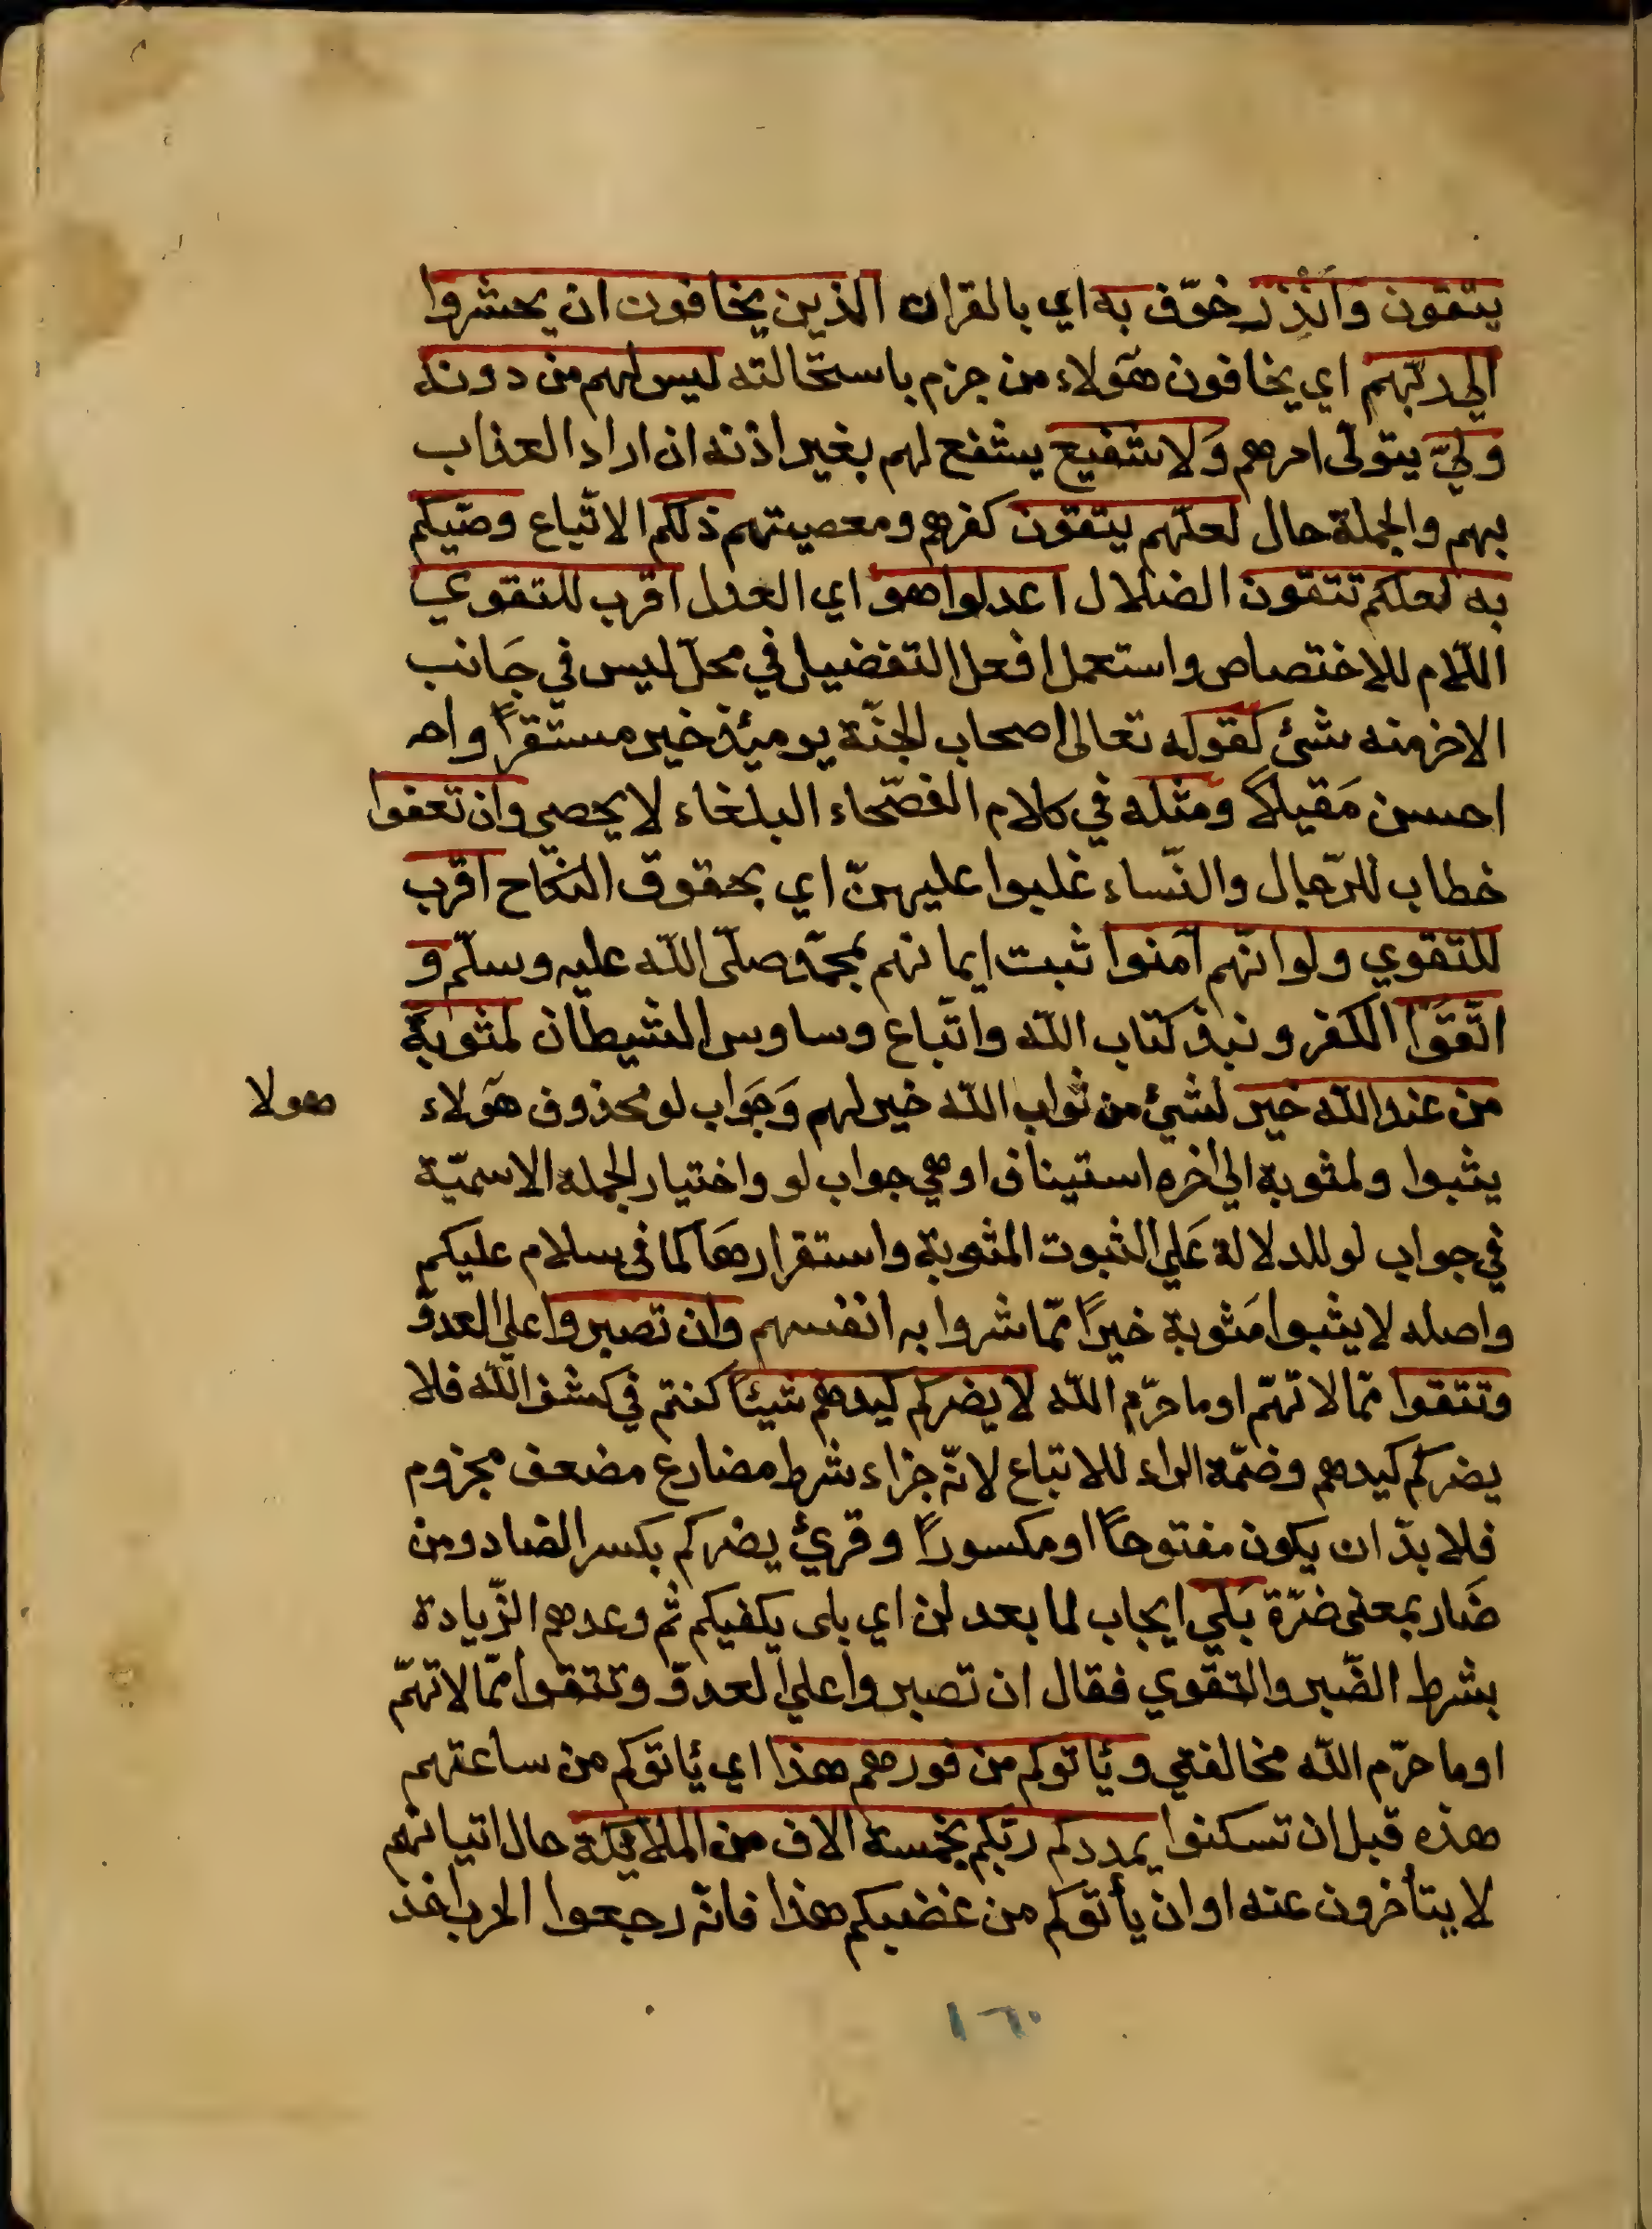 يتقون وَانْذِرْ خوّف به اي بالقران الذين يخافون ان يحشروا
الي ربّهم اي يخافون هَولاء من جزم باستحالته ليس لهم من دونه
وَليّ يتولّى امرهم وَلا شفيع يشفع لهم بغير اذنه ان اراد العذاب
بهم والجملة حال لعلّهم يتقون كفرهم ومعصيتهم ذلكم الاتّباع وصّيكم
به لعلكم تتقون الضلال اعدلوا هو اي العدل اقرب للتقوي
اللّام للاختصاص واستعمل افعل التفضيل في محلّ ليس في جَانب
الاخر منه شئ كقوله تعالى اصحاب الجنّة يومئذ خير مستقرًّا واحـ
احسن مَقيلاً ومثله في كلام الفصّحاء البلغاء لا يحصي وان تعفوا
خطاب للرّجال والنّساء غلبوا عليهنّ اي بحقوق النكاح اقرب
للتقوي ولو انّهم آمنوا ثبت ايمانهم بمحمّد صلّى اللّه عليه وسلّم و
اتّقَوْا الكفر ونبذ كتاب اللّه واتّباع وساوس الشيطان لمثوبة
من عند اللّه خير لشئ من ثواب اللّه خير لهم وَجَواب لو محذوف هَولاء
هولا
يثبوا ولمثوبة الي اخره استيناف او هي جواب لو واختيار الجملة الاسميّة
في جواب لو للدلالة عَلي الثبوت المثوبة واستقرارهَا كما في سلام عليكم
واصله لا يثبوا مَثوبة خيرًا ممّا شروا به انفسهم وان تصبروا علي العدوّ
وتتقوا ممّا لا تهمّ او ما حرّم اللّه لا يضركم كيدهم شيئًا كنتم في كشف اللّه فلا
يضركم كيدهم وضمّة الراء للاتباع لانّه جزاء شرط مضارع مضعف مجزوم
فلا بدّ ان يكون مفتوحًا او مكسورًا وقرئ يضركم بكسر الضاد ومن
ضَار بمعنى ضرّة بَلي ايجاب لما بعد لن اي بلى يكفيكم ثم وعدهم الزّيادة
بشرط الصّبر والتقوي فقال ان تصبروا علي العدوّ وتتقوا ممّا لا تهمّ
او ما حرّم اللّه مخالفتي وئاتوكم من فورهم هذا اي ئاتوكم من ساعتهم
هذه قبل ان تسكنوا يمددكم ربّكم بخمسة الاف من الملائكة حال اتيانهم
لا يتأخرون عنه او ان يأتوكم من غضبكم هذا فانّه رجعوا الحرب
١٦٠